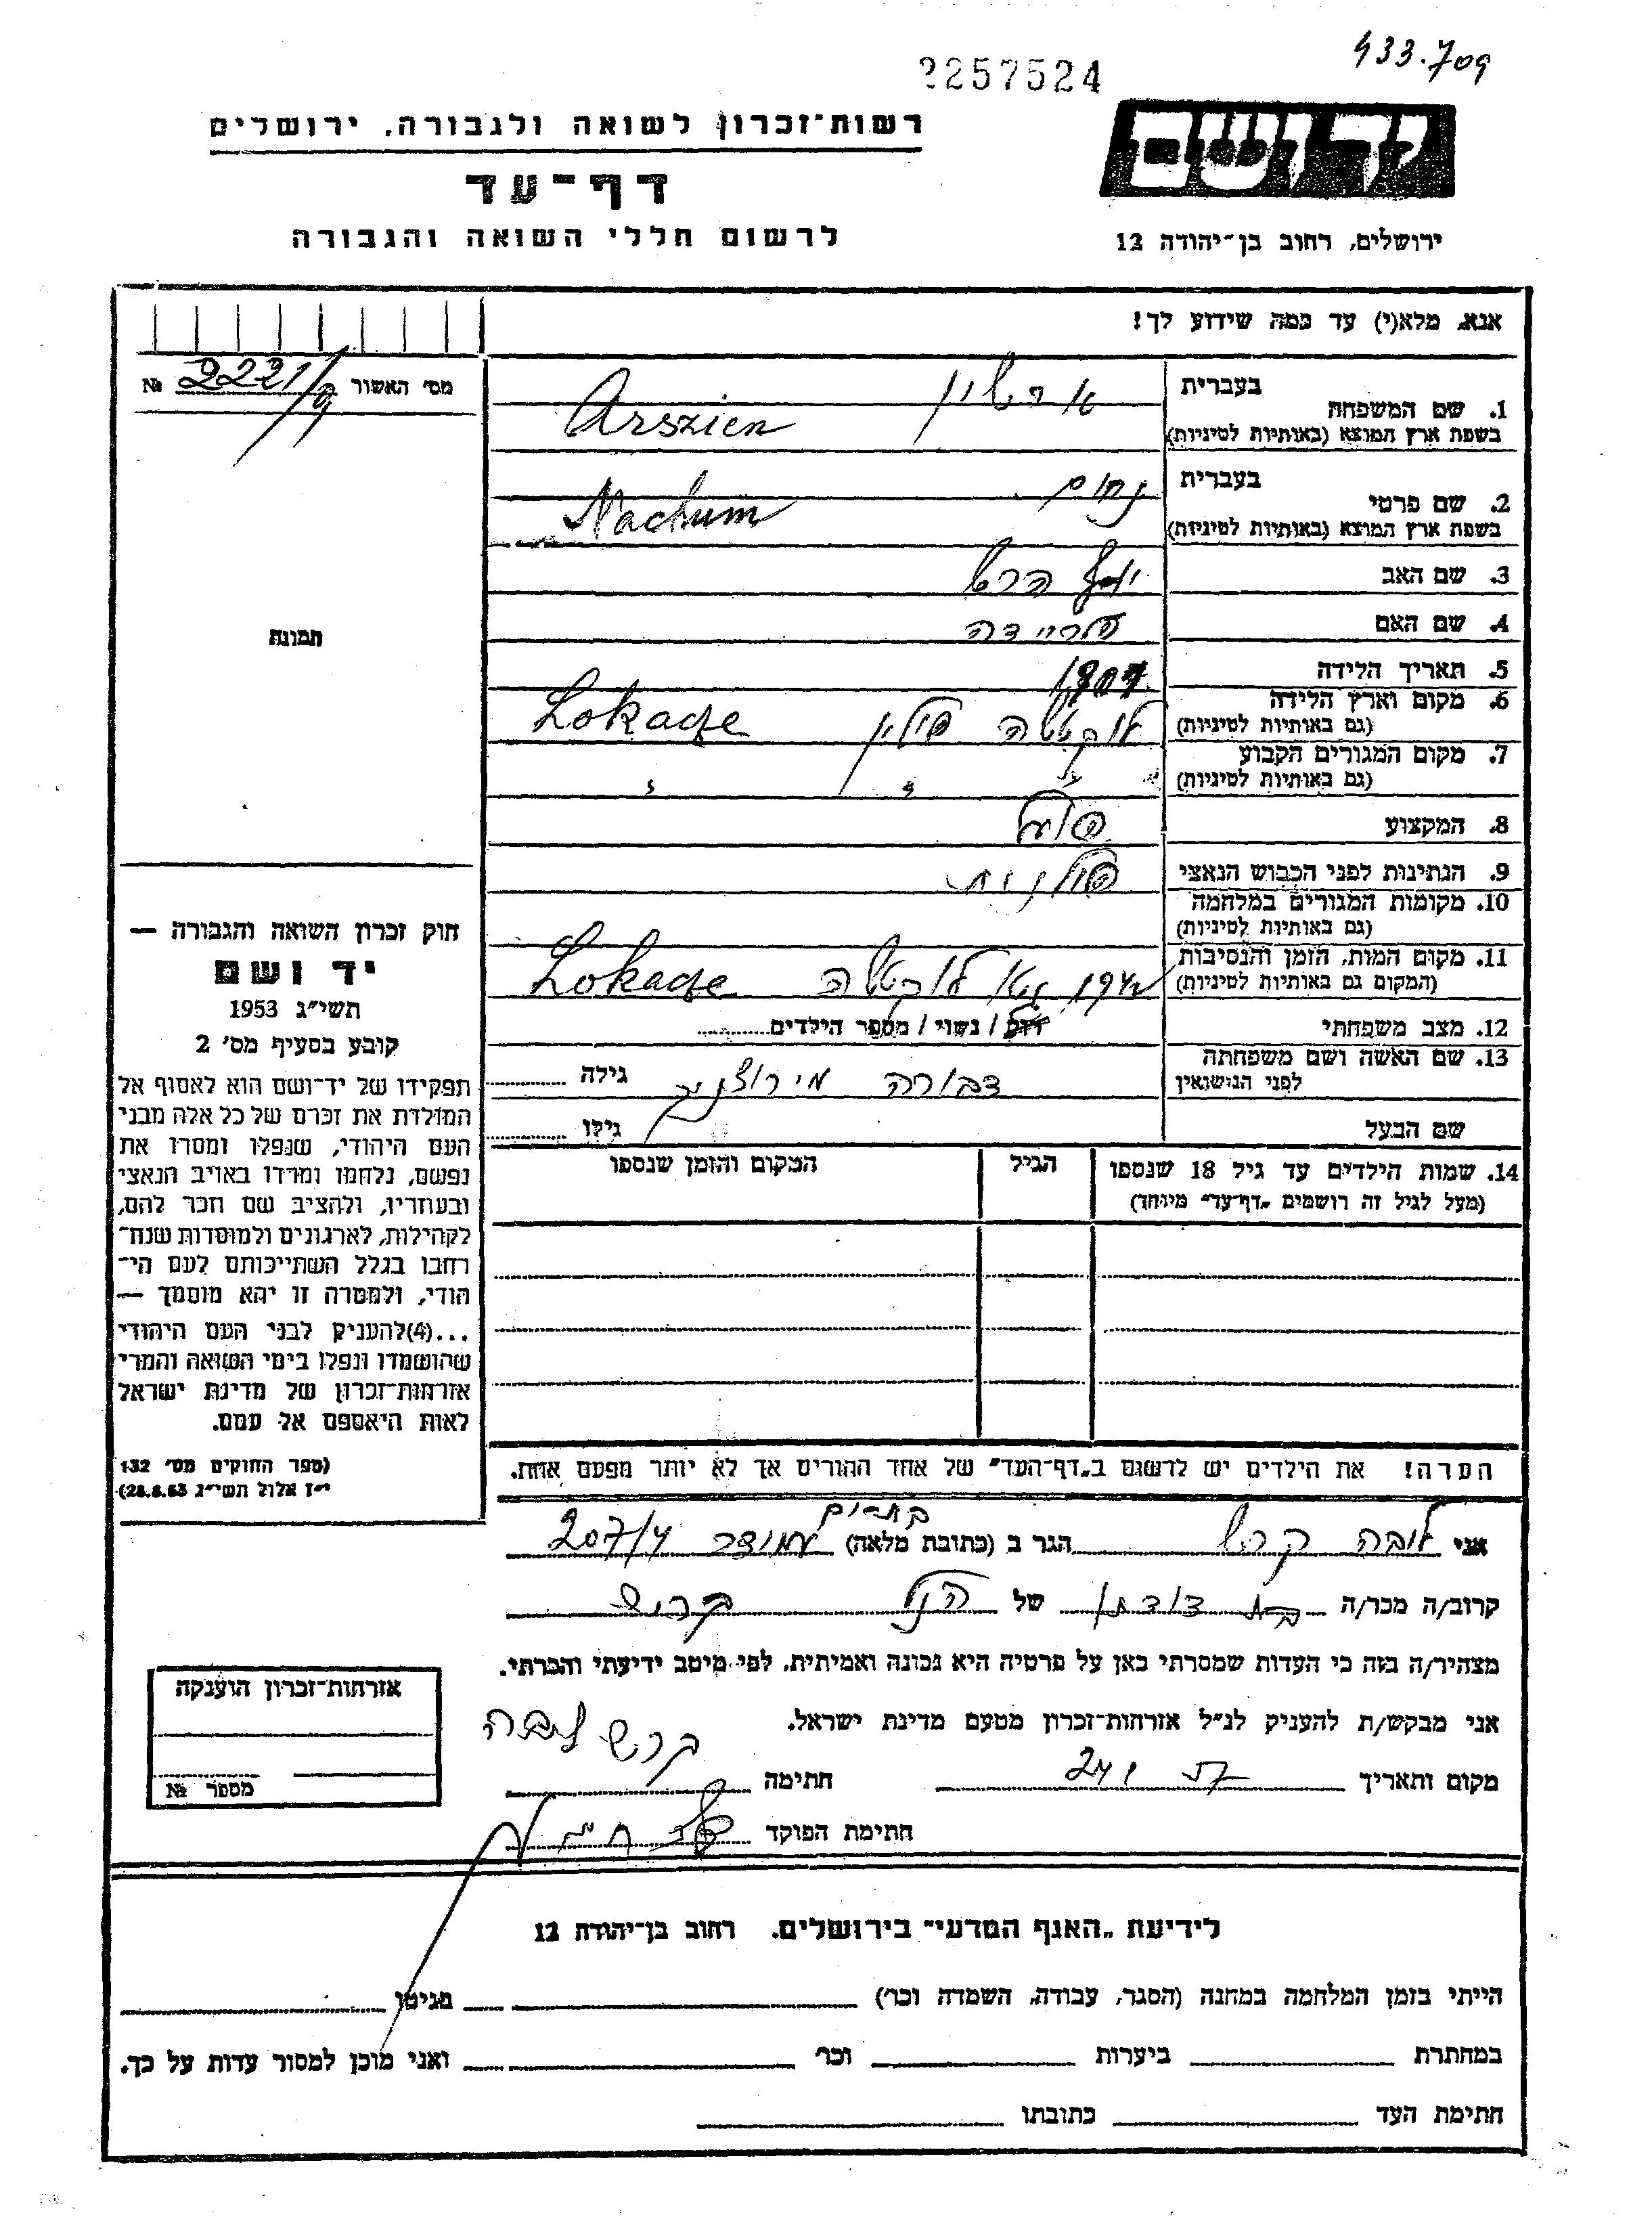 433.709
2257524
יד ושם
רשות־זכרון לשואה ולגבורה, ירושלים
דף־עד
לרשום חללי השואה והגבורה
ירושלים, רחוב בן־יהודה 12
אנא, מלא(י) עד כמה שידוע לך!
מס׳ האשור № 2221/9
1. שם המשפחה בעברית
בשפת ארץ המוצא (באותיות לטיניות) Arszien
2. שם פרטי בעברית נחום
בשפת ארץ המוצא (באותיות לטיניות) Nachum
3. שם האב יוסף הרש
4. שם האם
5. תאריך הלידה
6. מקום וארץ הלידה
(גם באותיות לטיניות) פולין Lokacze
7. מקום המגורים הקבוע
(גם באותיות לטיניות) " " "
8. המקצוע פועל
9. הנתינות לפני הכבוש הנאצי פולנית
10. מקומות המגורים במלחמה
(גם באותיות לטיניות)
11. מקום המות, הזמן והנסיבות
(המקום גם באותיות לטיניות) 1942 Lokacze
12. מצב משפחתי רווק / נשוי / מספר הילדים..........
13. שם האשה ושם משפחתה
לפני הנישואין דבורה גילה ..........
שם הבעל גילו ..........
14. שמות הילדים עד גיל 18 שנספו
(מעל לגיל זה רושמים „דף־עד״ מיוחד)
הגיל
המקום והזמן שנספו
הערה! את הילדים יש לרשום ב„דף־העד״ של אחד ההורים אך לא יותר מפעם אחת.
תמונה
חוק זכרון השואה והגבורה —
יד ושם
תשי״ג 1953
קובע בסעיף מס׳ 2
תפקידו של יד־ושם הוא לאסוף אל
המולדת את זכרם של כל אלה מבני
העם היהודי, שנפלו ומסרו את
נפשם, נלחמו ומרדו באויב הנאצי
ובעוזריו, ולהציב שם וזכר להם,
לקהילות, לארגונים ולמוסדות שנח־
רבו בגלל השתייכותם לעם הי־
הודי, ולמטרה זו יהא מוסמך —
...(4)להעניק לבני העם היהודי
שהושמדו ונפלו בימי השואה והמרי
אזרחות־זכרון של מדינת ישראל
לאות היאספם אל עמם.
(ספר החוקים מס׳ 132
י״ז אלול תשי״ג 28.8.53)
אני לובה קרש הגר ב (כתובת מלאה) 207/4
קרוב/ה מכר/ה בת דודתו של הנ״ל קרוש
מצהיר/ה בזה כי העדות שמסרתי כאן על פרטיה היא נכונה ואמיתית, לפי מיטב ידיעתי והכרתי.
אני מבקש/ת להעניק לנ״ל אזרחות־זכרון מטעם מדינת ישראל.
קרש לובה
מקום ותאריך חתימה
חתימת הפוקד
אזרחות־זכרון הוענקה
מספר №
לידיעת „האגף המדעי״ בירושלים, רחוב בן־יהודה 12
הייתי בזמן המלחמה במחנה (הסגר, עבודה, השמדה וכו׳) בגיטו
במחתרת ביערות וכו׳ ואני מוכן למסור עדות על כך.
חתימת העד כתובתו